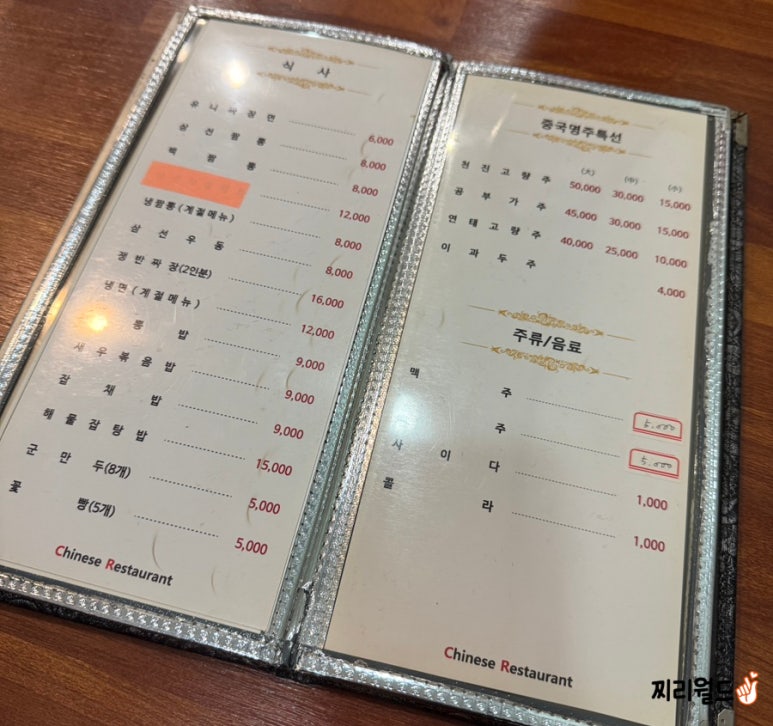 식 사
유니짜장면 6,000
삼선짬뽕 8,000
백짬뽕 8,000
12,000
냉짬뽕(계절메뉴) 8,000
삼선우동 8,000
쟁반짜장(2인분) 16,000
냉면(계절메뉴) 12,000
뽕밥 9,000
새우볶음밥 9,000
잡채밥 9,000
해물잡탕밥 15,000
군만두(8개) 5,000
꽃빵(5개) 5,000
Chinese Restaurant
중국명주특선
(大) (中) (小)
천진고량주 50,000 30,000 15,000
공부가주 45,000 30,000 15,000
연태고량주 40,000 25,000 10,000
이과두주 4,000
주류/음료
맥주 5.000
주 5.000
사이다 1,000
콜라 1,000
Chinese Restaurant
찌리월드